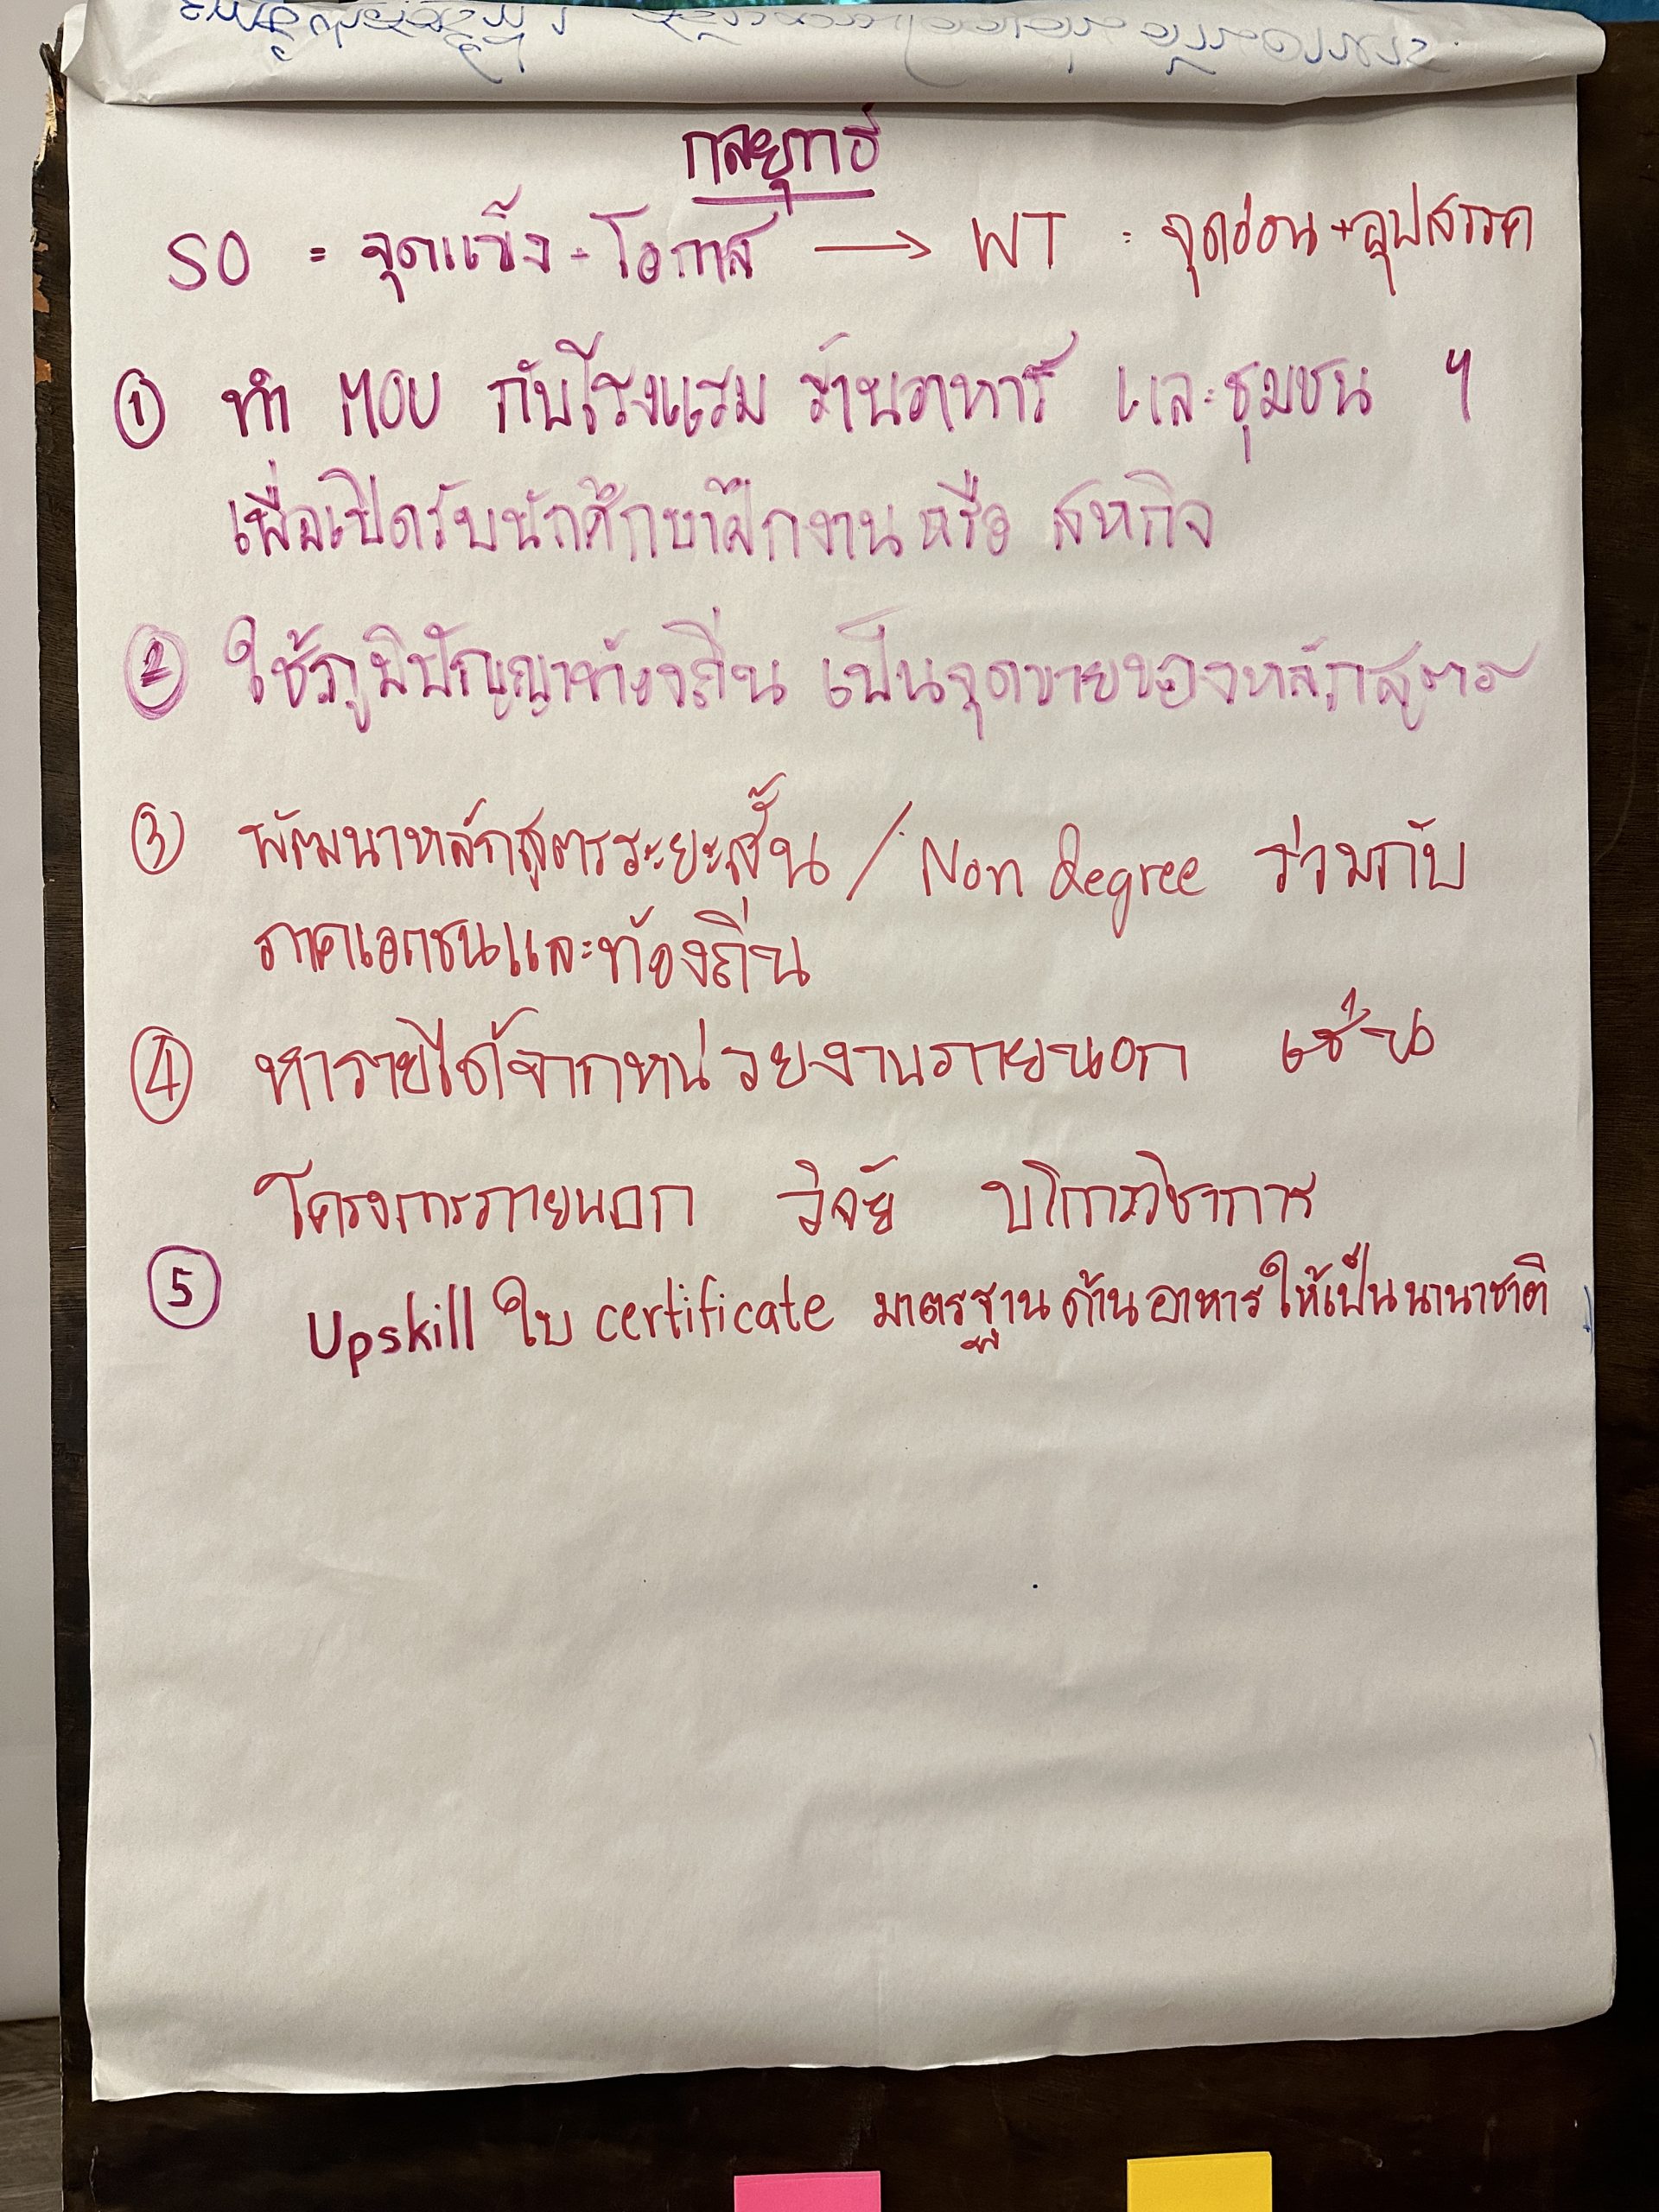 กลยุทธ์
SO = จุดแข็ง - โอกาส → WT : จุดอ่อน + อุปสรรค
① ทำ MOU กับโรงแรม ร้านอาหาร และชุมชน ฯ
เพื่อเปิดรับนักศึกษาฝึกงานหรือ สหกิจ
② ใช้ภูมิปัญญาท้องถิ่น เป็นจุดขายของหลักสูตร
③ พัฒนาหลักสูตรระยะสั้น / Non degree ร่วมกับ
ภาคเอกชนและท้องถิ่น
④ หารายได้จากหน่วยงานภายนอก เช่น
โครงการภายนอก วิจัย บริการวิชาการ
⑤ Upskill ใบ certificate มาตรฐานด้านอาหารให้เป็นนานาชาติ